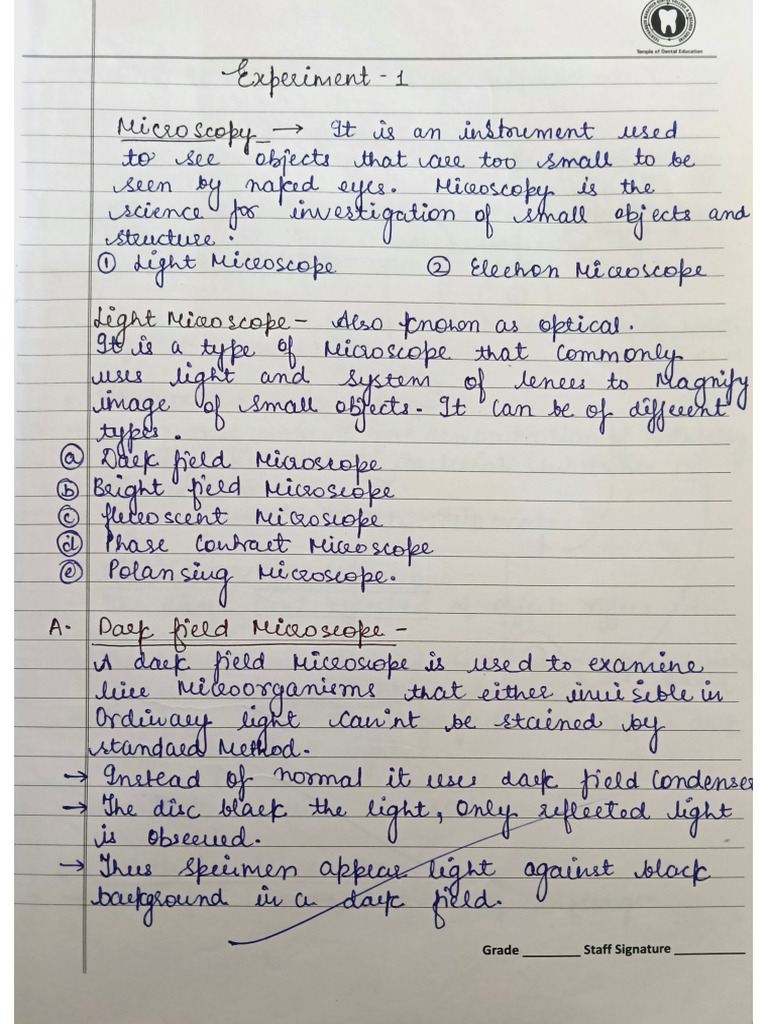 Temple of Dental Education
Experiment - 1
Microscopy → It is an instrument used
to see objects that are too small to be
seen by naked eyes. Microscopy is the
science for investigation of small objects and
structure.
① Light Microscope ② Electron Microscope
Light Microscope - Also known as optical.
It is a type of Microscope that commonly
uses light and system of lenses to Magnify
image of small objects. It can be of different
types.
ⓐ Dark field Microscope
ⓑ Bright field Microscope
ⓒ fluroscent Microscope
ⓓ Phase Contract Microscope
ⓔ Polansing Microscope.
A. Dark field Microscope -
A dark field Microscope is used to examine
live Microorganisms that either invisible in
Ordinary light can'nt be stained by
standard Method.
→ Instead of normal it uses dark field Condenser
→ The disc black the light, Only reflected light
is observed.
→ Thus specimen appear light against black
background in a dark field.
Grade ________ Staff Signature __________